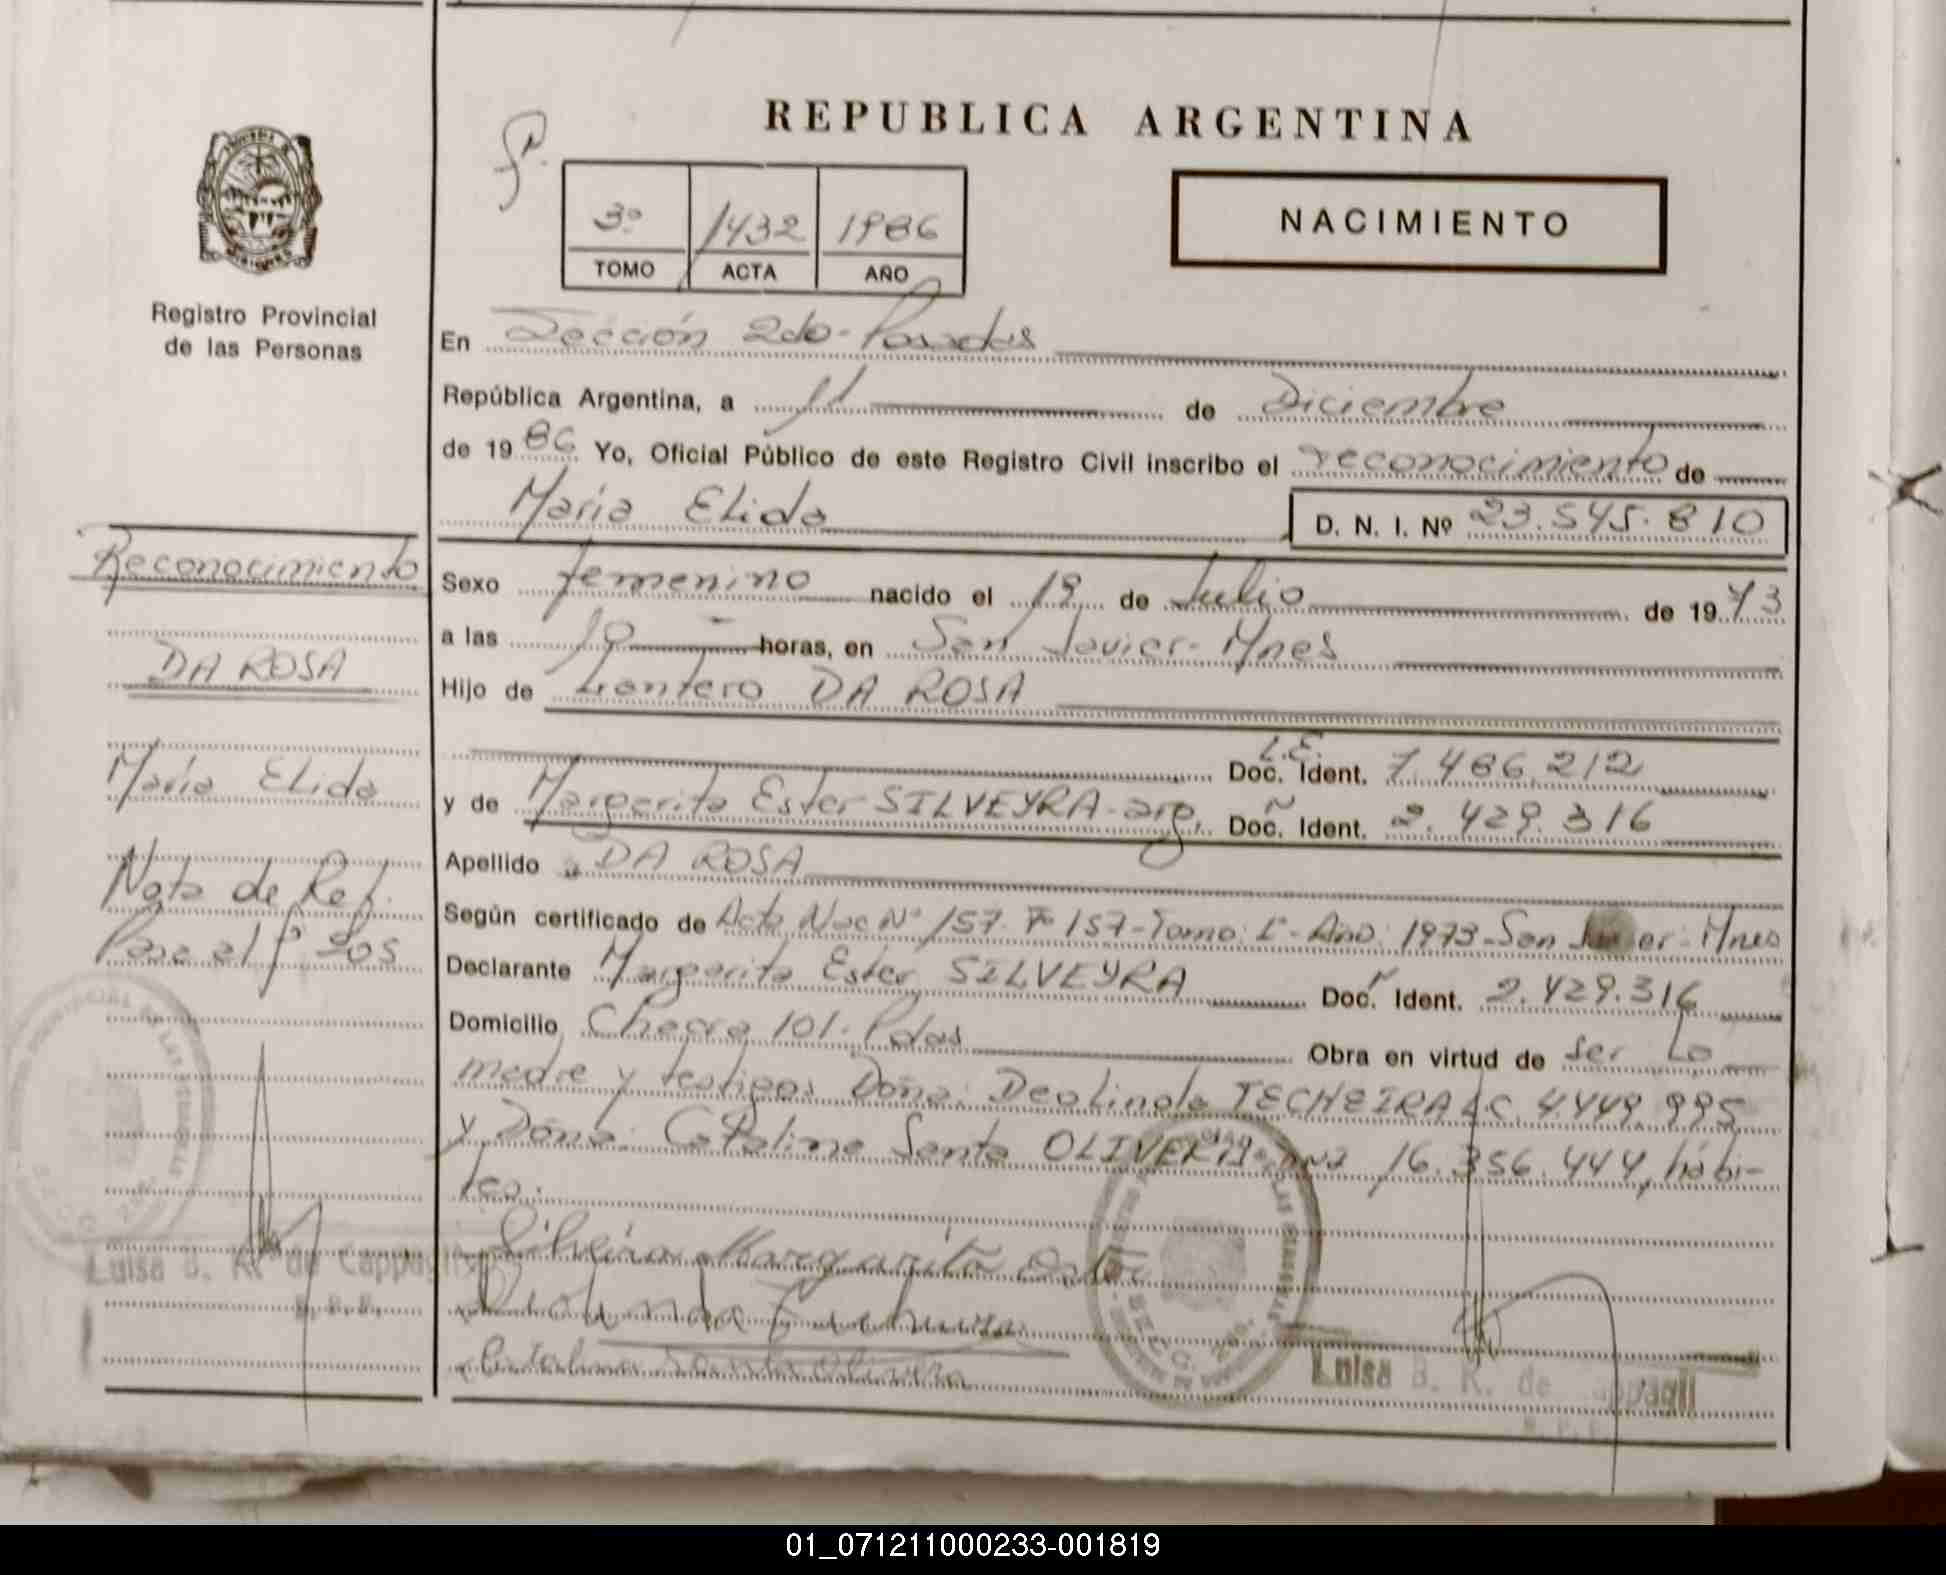 REPUBLICA ARGENTINA
3º 1432 1986
TOMO ACTA AÑO
NACIMIENTO
Registro Provincial
de las Personas
En Sección 2da - Posadas
República Argentina, a 11 de Diciembre
de 1986 Yo, Oficial Público de este Registro Civil inscribo el reconocimiento de
María Elida D. N. I. Nº 23.545.810
Reconocimiento
DA ROSA
María Elida
Nota de Ref.
Pase al fº 205
Sexo femenino nacido el 19 de Julio de 1973
a las 19 horas, en San Javier - Mnes
Hijo de DA ROSA
L.E.
Doc. Ident. 7.486.212
y de Margarita Ester SILVEYRA - arg. Doc. Ident. 2.429.316
Apellido DA ROSA
Según certificado de Acta Nac Nº 157 Fº 157 - Tomo: 1º - Año: 1973 - San Javier - Mnes
Declarante Margarita Ester SILVEYRA Doc. Ident. 2.429.316
Domicilio Chacra 101 - Pdas Obra en virtud de ser la
madre y testigos Doña: Deolinda TECHEIRA L.C. 4.449.995
y Doña: Catalina Santa OLIVERA DNI 16.356.444, hábi-
les.
Silveira Margarita Ester
Catalina Santa Olivera
Luisa B. R. de Cappagli
Luisa B. R. de Cappagli
01_071211000233-001819